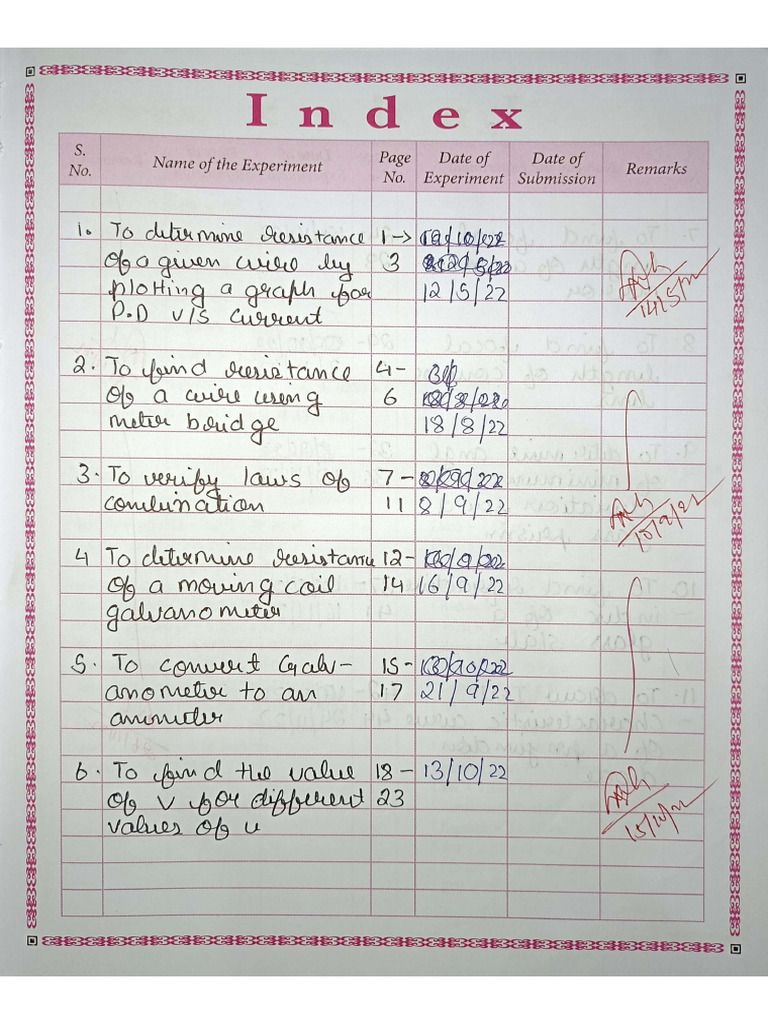 Index
S. No. Name of the Experiment Page No. Date of Experiment Date of Submission Remarks
1. To determine resistance 1→
of a given wire by 3
plotting a graph for 12/5/22
P.D v/s current
14/5/22
2. To find resistance 4-
of a wire using 6
meter bridge 18/8/22
3. To verify laws of 7-
combination 11 8/9/22
10/9/22
4 To determine resistance 12-
of a moving coil 14 16/9/22
galvanometer
5. To convert Galv- 15-
anometer to an 17 21/9/22
ammeter
6. To find the value 18- 13/10/22
of v for different 23
values of u
15/10/22